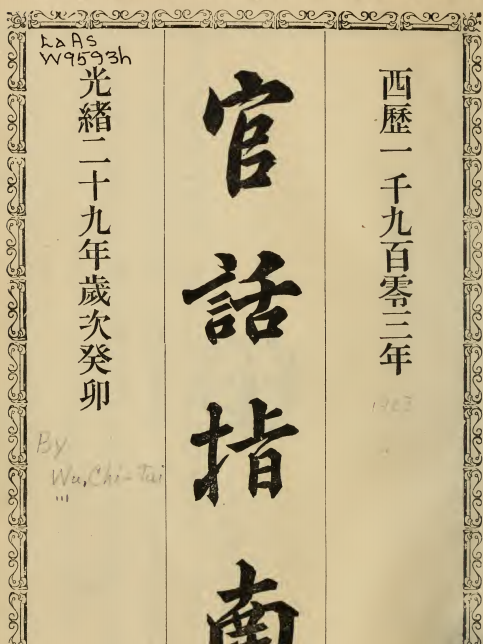 LaAs
W9593h
西歷一千九百零三年
官話指南
光緒二十九年歲次癸卯
1903
By
Wu, Chi-Tai